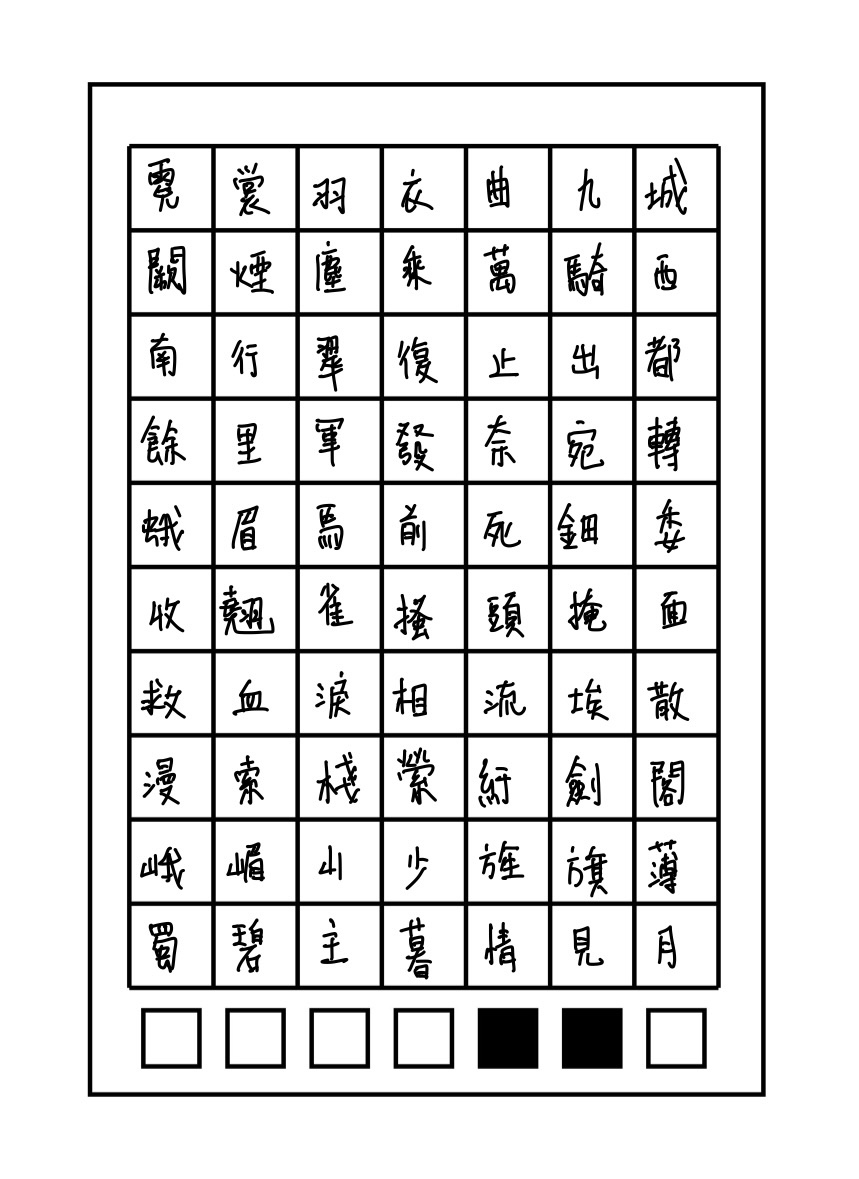 霓裳羽衣曲九城
闕煙塵乘萬騎西
南行翠復止出都
餘里軍發奈宛轉
蛾眉焉前死鈿委
收翹雀搔頭掩面
救血淚相流埃散
漫索棧縈紆劍閣
峨嵋山少旌旗薄
蜀碧主暮情見月